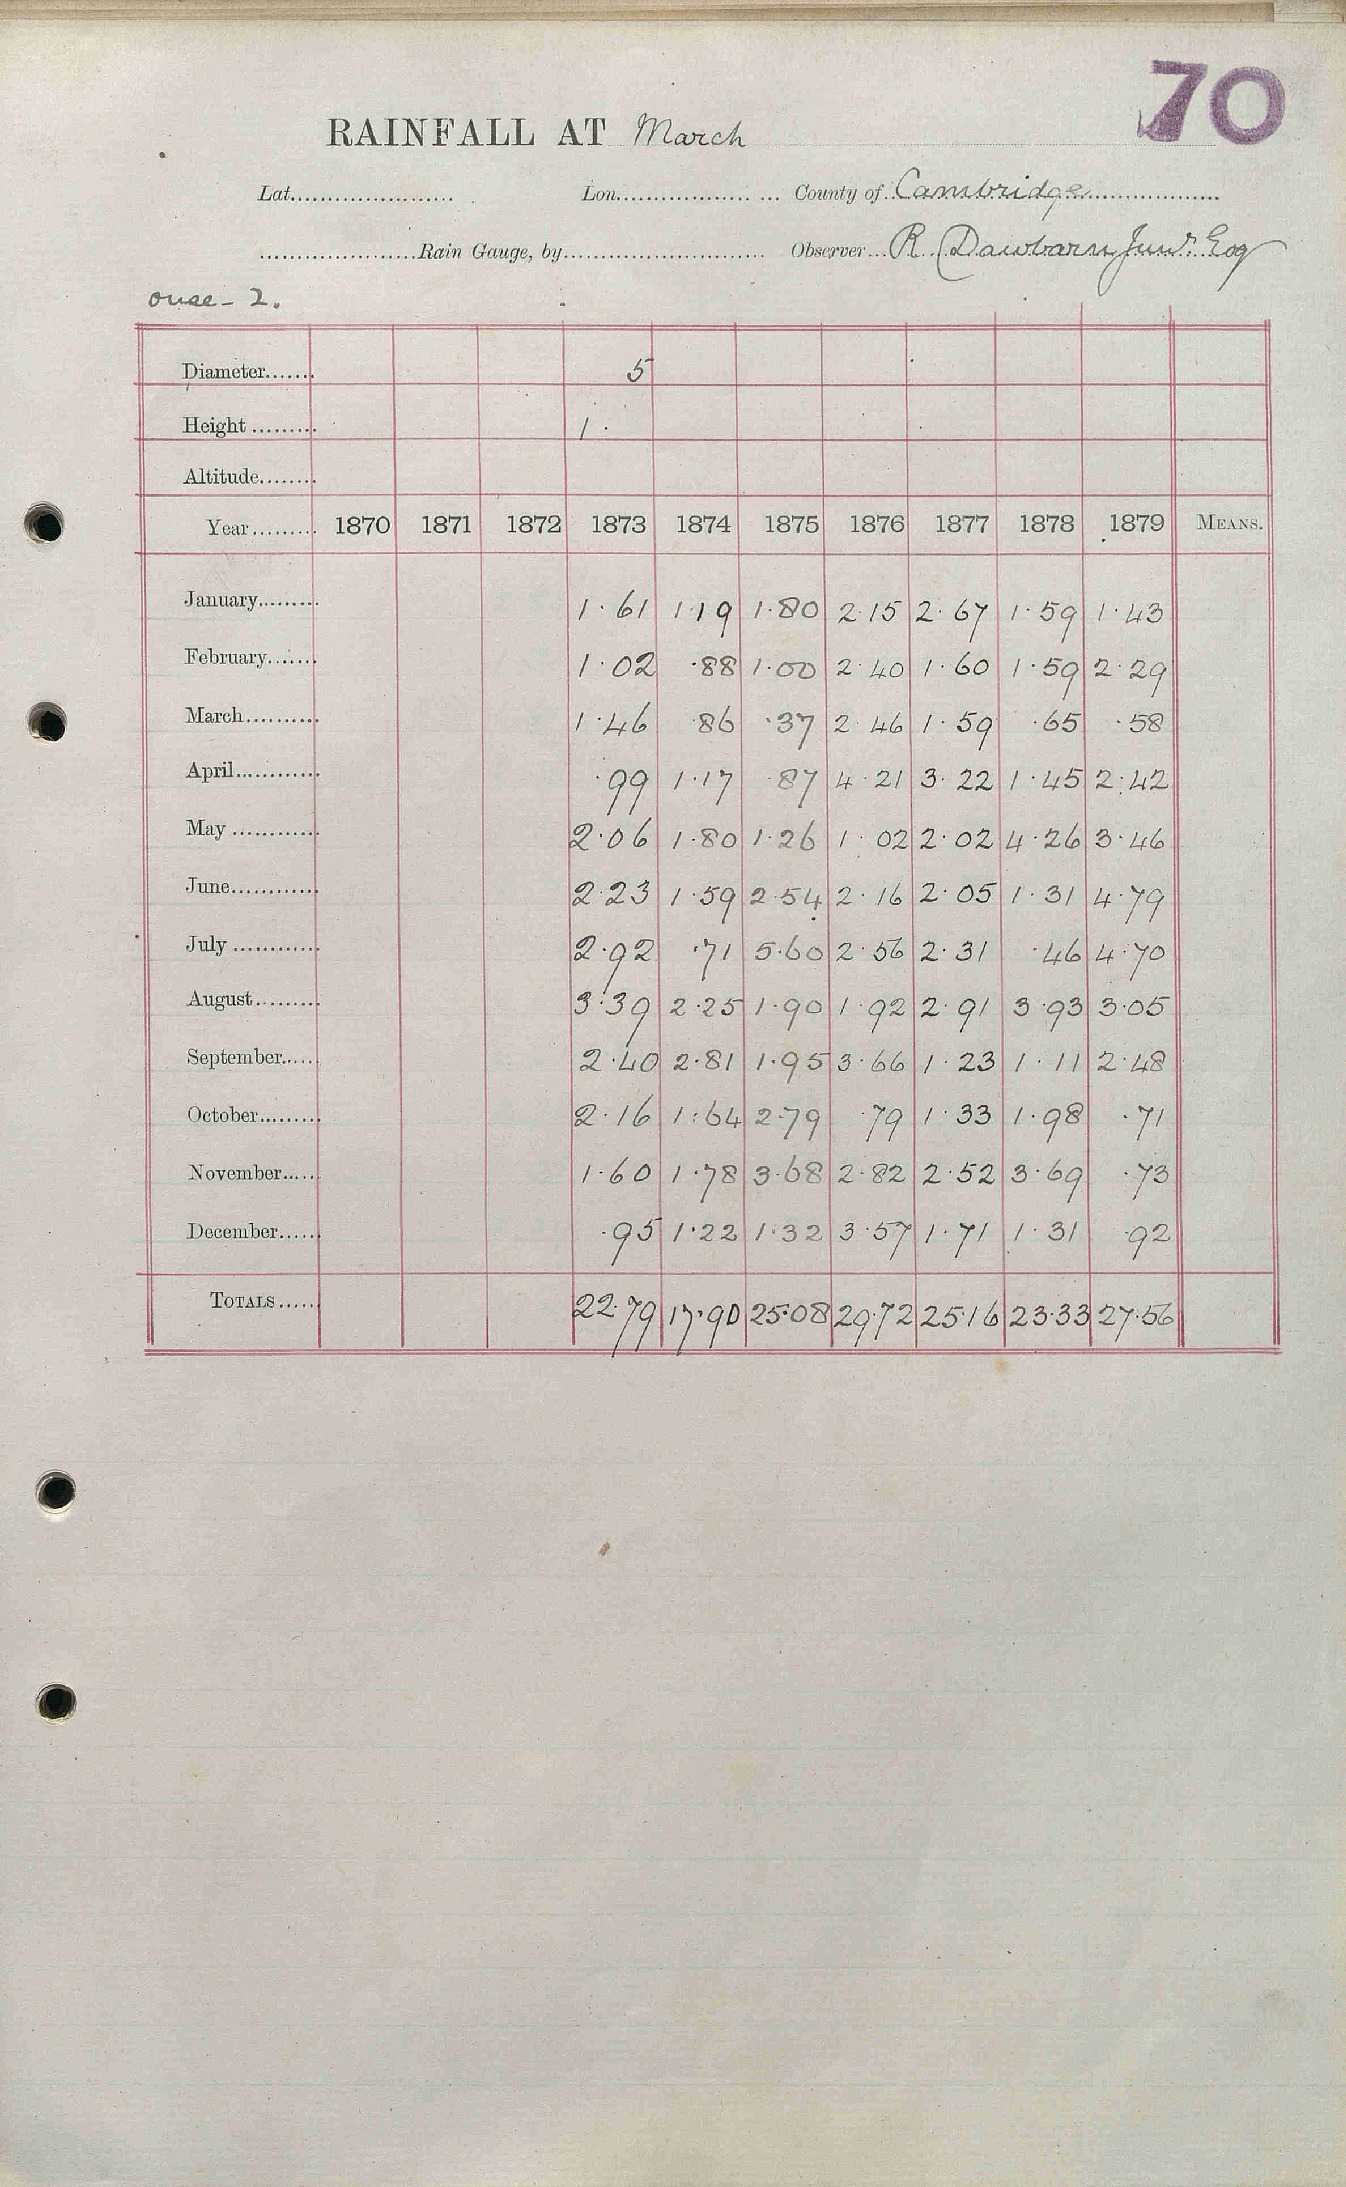 70
RAINFALL AT March
Lat. Lon. County of Cambridge
Rain Gauge, by Observer R Dawbarn Junr. Esq
ouse - 2.
Diameter 5
Height 1 ·
Altitude
Year 1870 1871 1872 1873 1874 1875 1876 1877 1878 1879 MEANS.
January 1·61 1·19 1·80 2·15 2·67 1·59 1·43
February 1·02 ·88 1·00 2·40 1·60 1·59 2·29
March 1·46 ·86 ·37 2·46 1·59 ·65 ·58
April ·99 1·17 ·87 4·21 3·22 1·45 2·42
May 2·06 1·80 1·26 1·02 2·02 4·26 3·46
June 2·23 1·59 2·54 2·16 2·05 1·31 4·79
July 2·92 ·71 5·60 2·56 2·31 ·46 4·70
August 3·39 2·25 1·90 1·92 2·91 3·93 3·05
September 2·40 2·81 1·95 3·66 1·23 1·11 2·48
October 2·16 1·64 2·79 ·79 1·33 1·98 ·71
November 1·60 1·78 3·68 2·82 2·52 3·69 ·73
December ·95 1·22 1·32 3·57 1·71 1·31 ·92
TOTALS 22·79 17·90 25·08 29·72 25·16 23·33 27·56